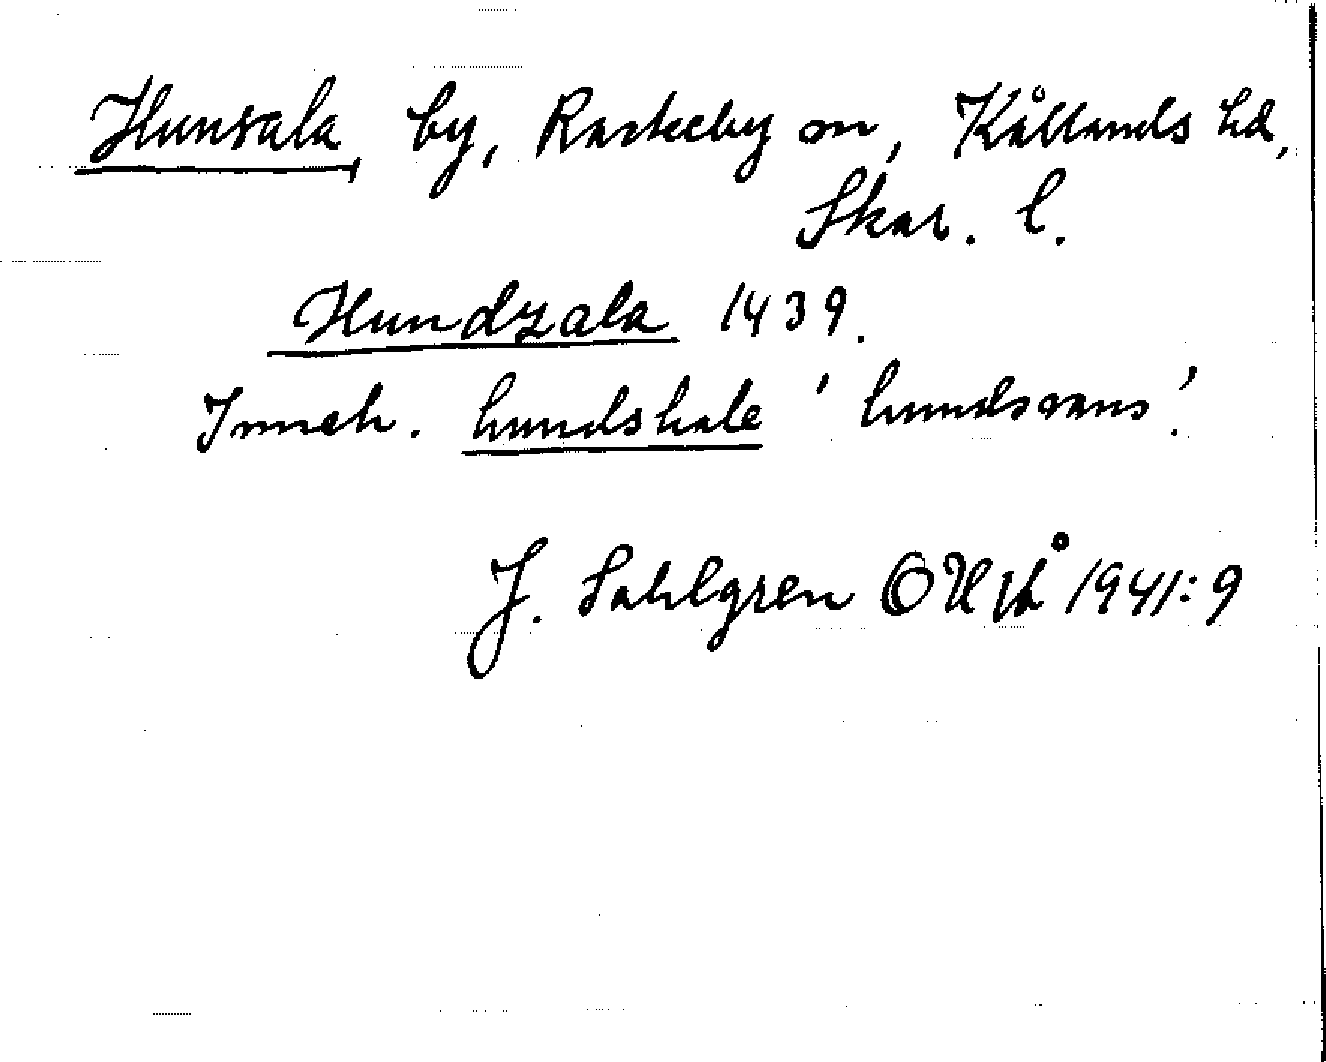 Hunsala, by, Rackeby sn, Kållands hd,
Skar. l.
Hundzala 1439.
Inneh. hundshale 'hundsvans'.
J. Sahlgren OUÅ 1941:9